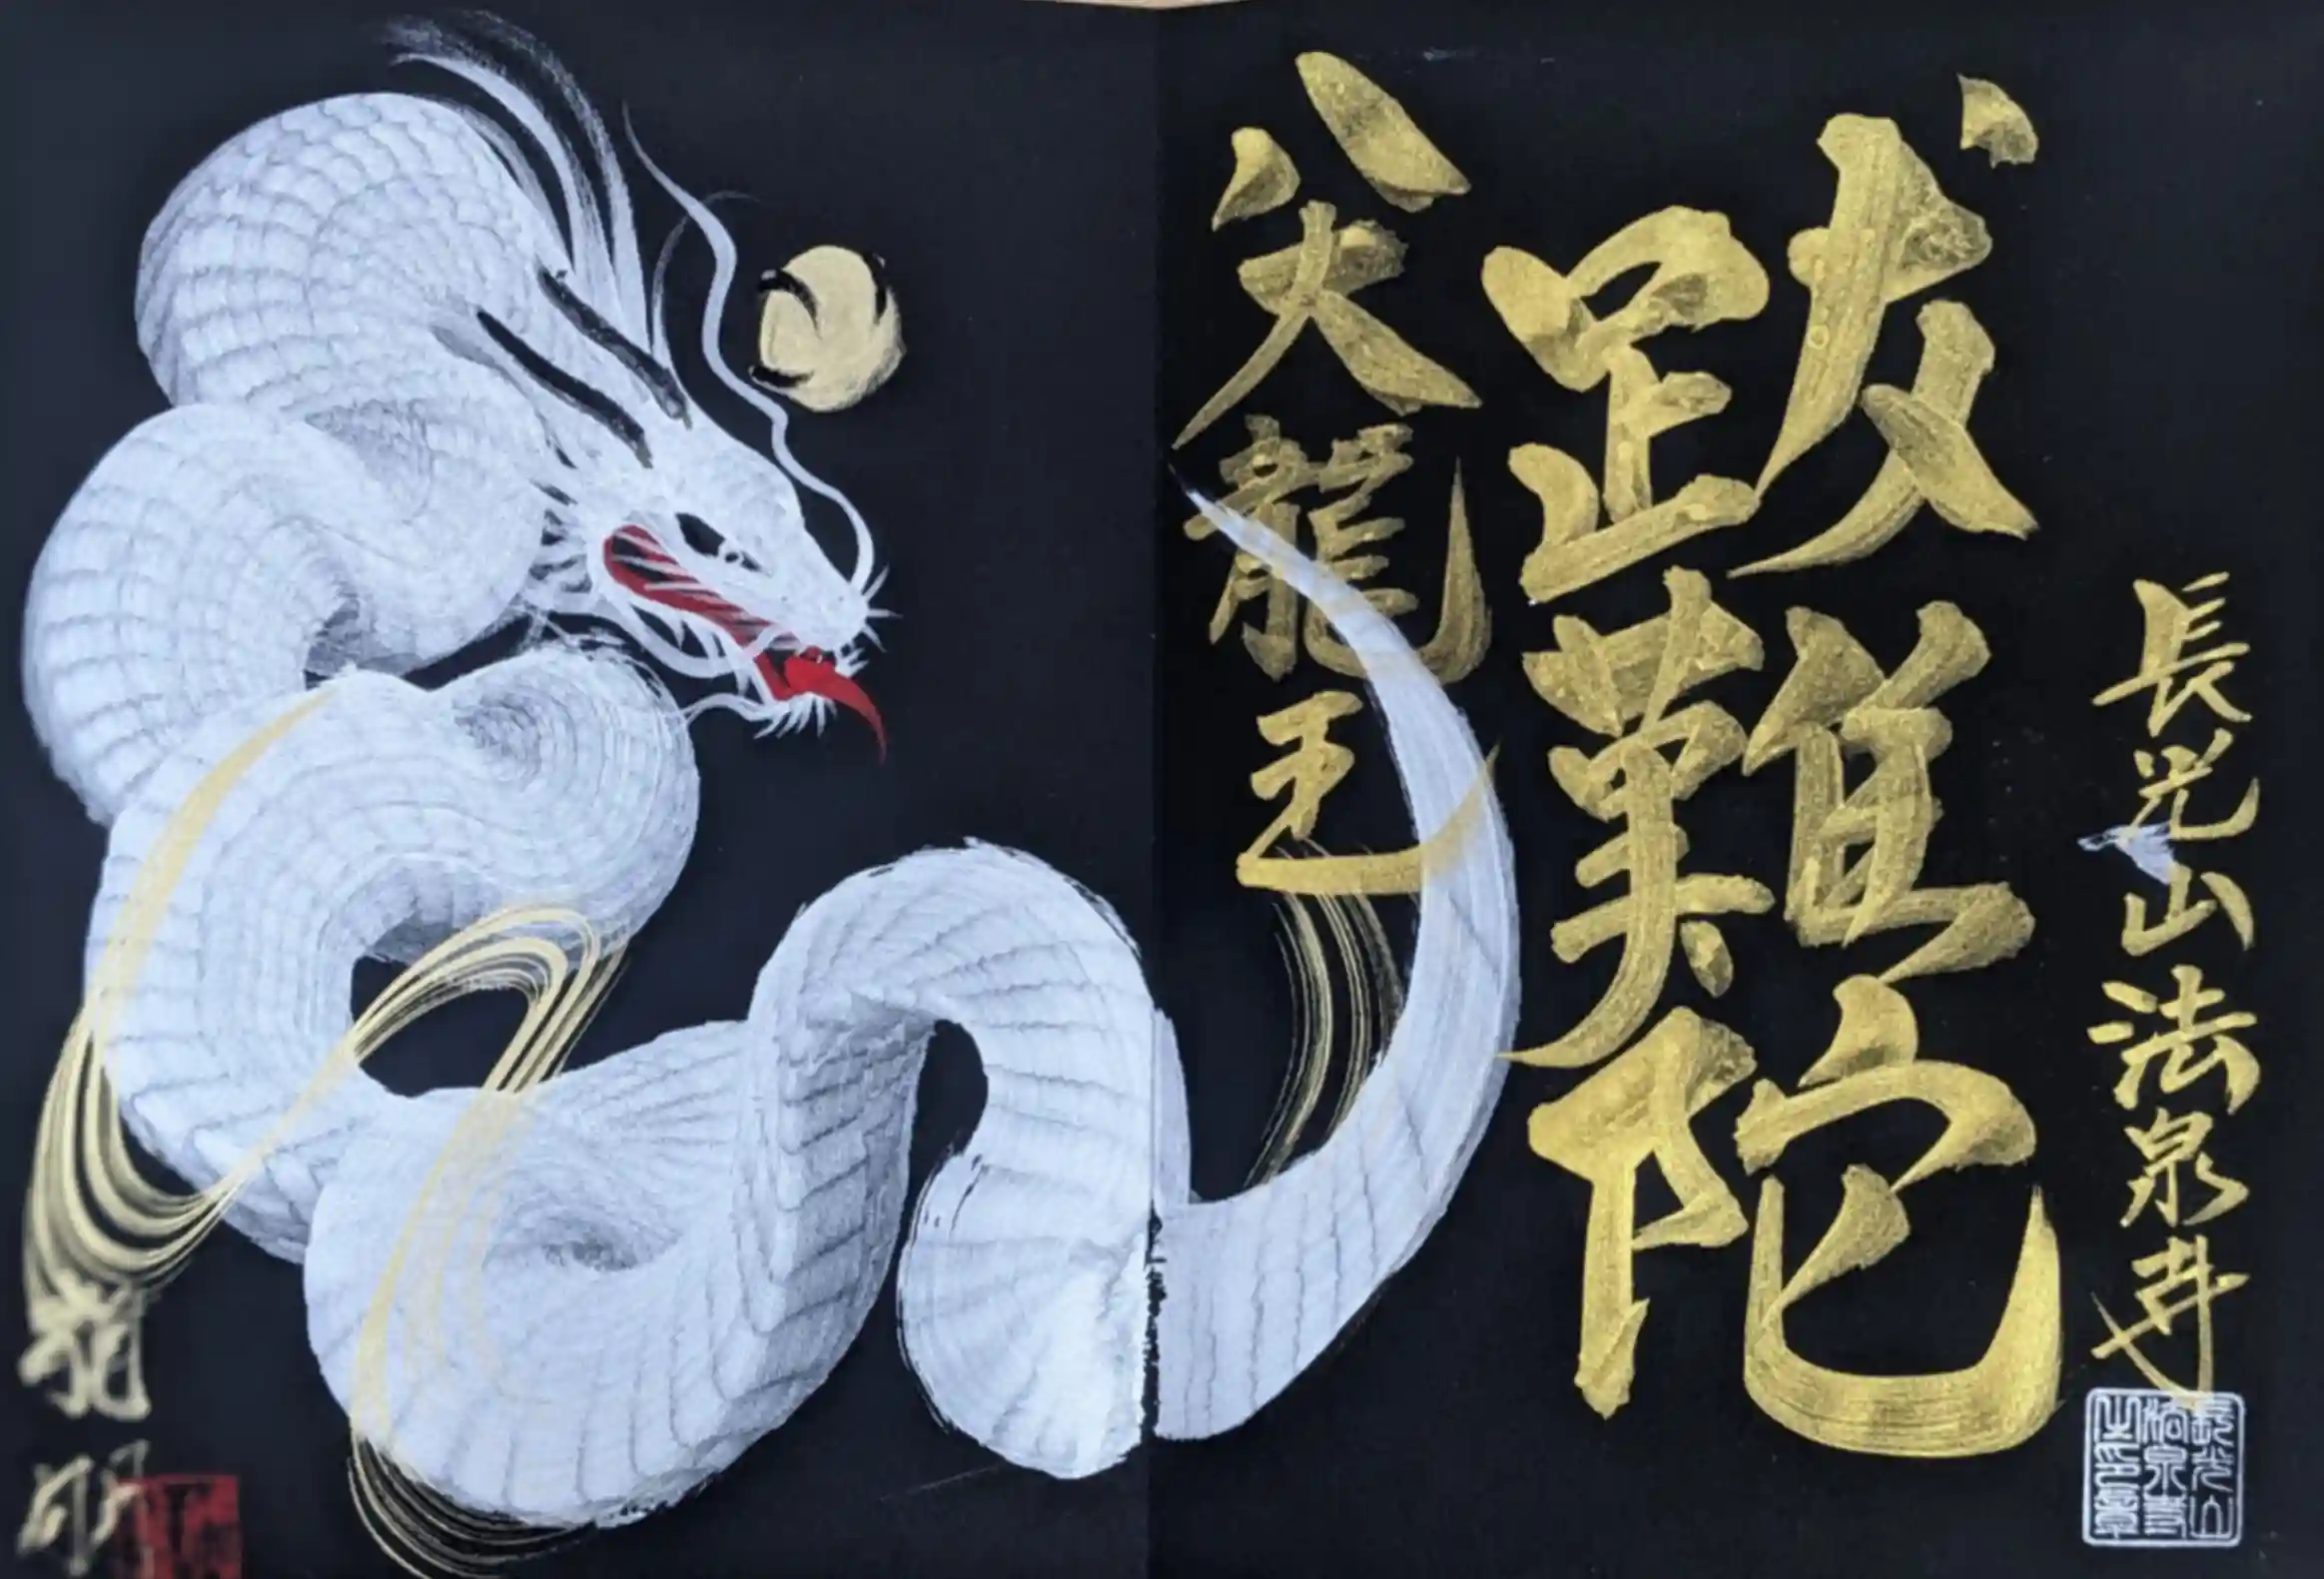 長光山法泉寺
跋難陀
八大龍王
長光山
法泉寺
之印章